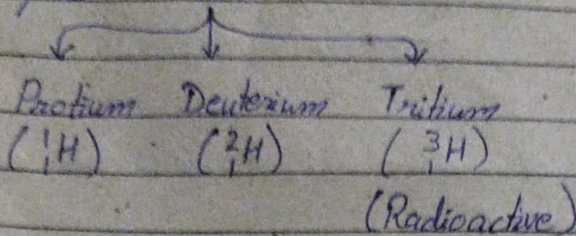 Protium Deuterium Tritium
(¹₁H) (²₁H) (³₁H)
(Radioactive)